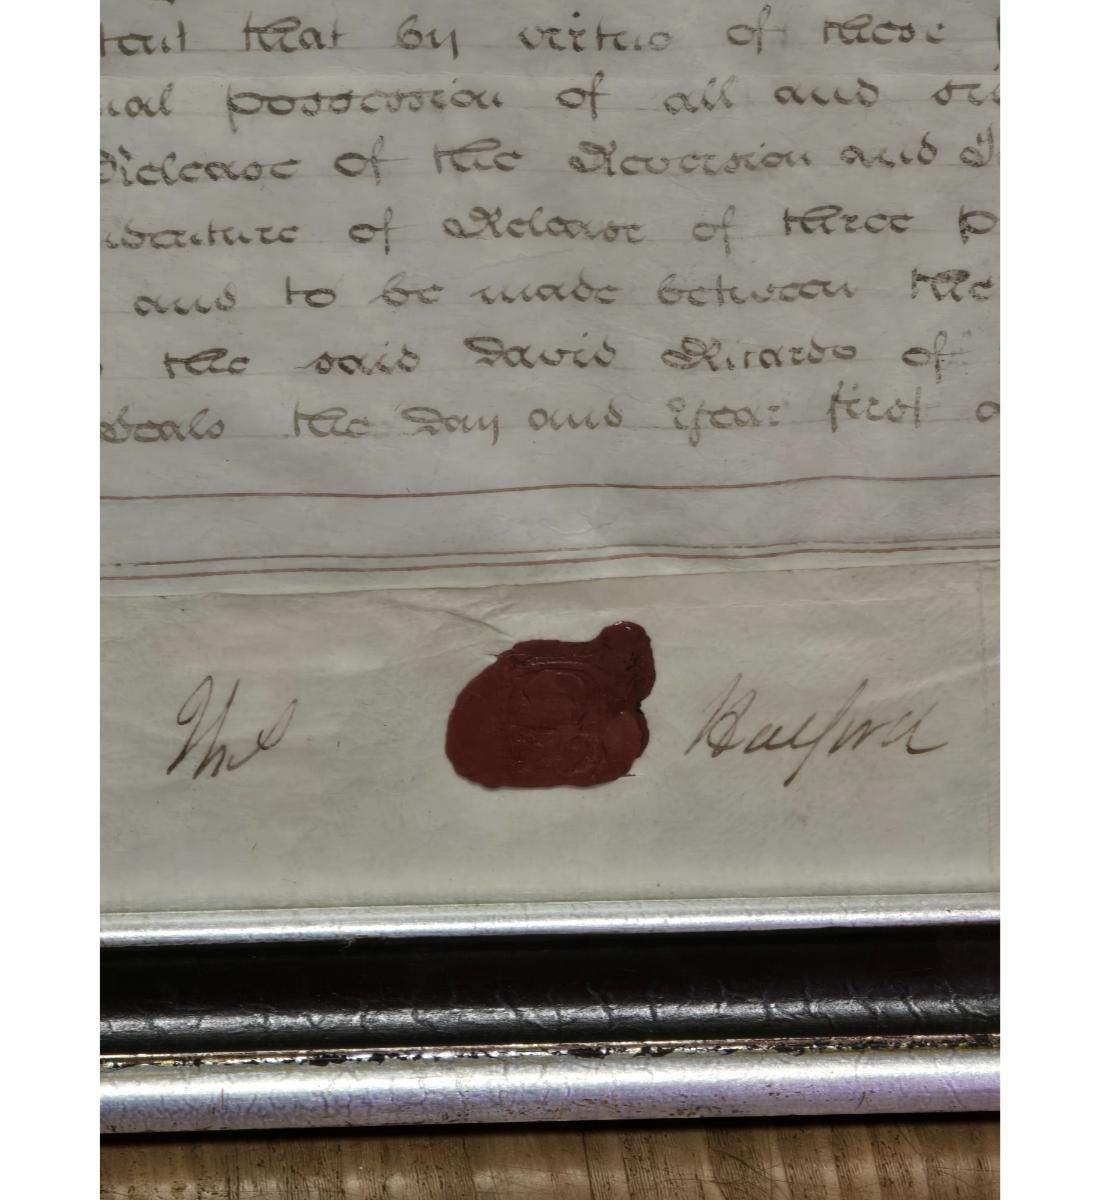 tent that by virtue of these
ual possession of all and si
Release of the Reversion and I
ndenture of Release of three p
and to be made between the
the said David Ricardo of
Seals the Day and Year first a
Thos Halford